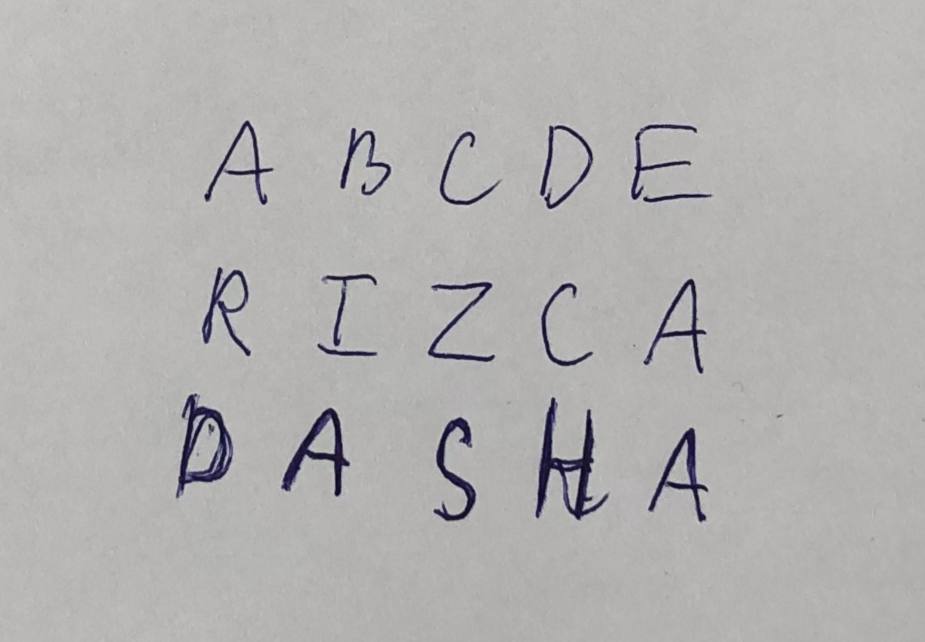 A B C D E
R I Z C A
D A S H A